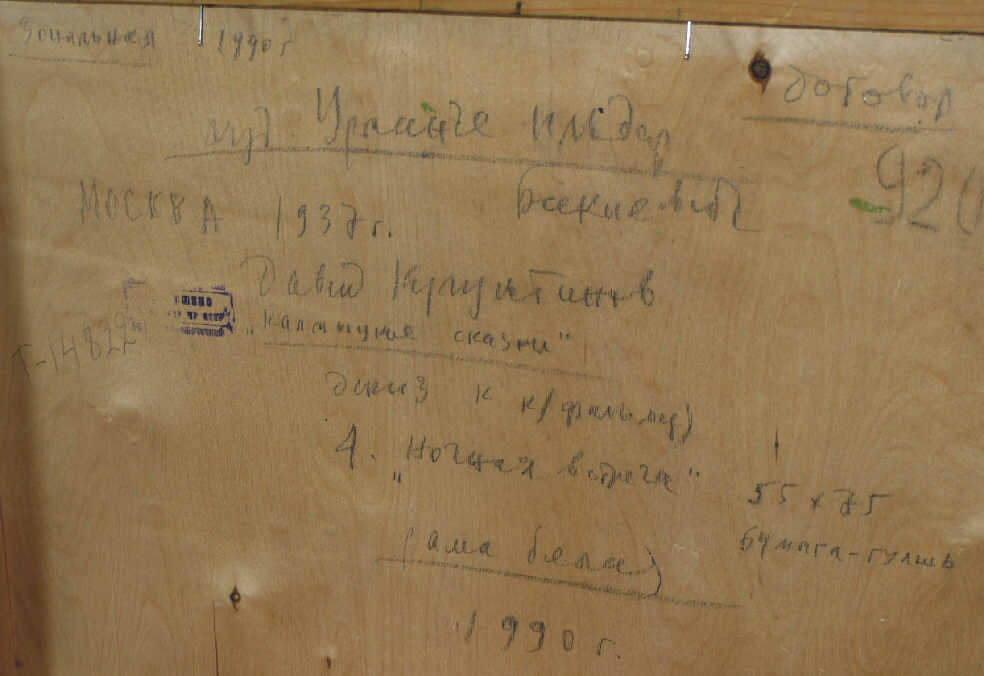 Зональная 1990 г
договор
худ. Урманче Ильдар
920
МОСКВА 1937 г.
Давид Кугультинов
"Калмыцкие сказки"
Т-14822
Эскиз к к/фильму)
4. "Ночная встреча"
55 x 75
бумага-гуашь
рама белая)
1990 г.